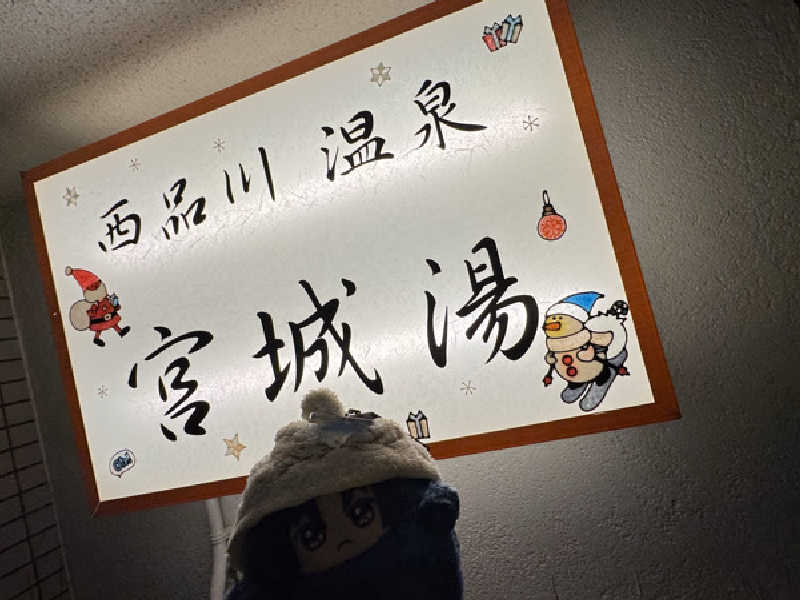 西品川 温泉
宮城湯